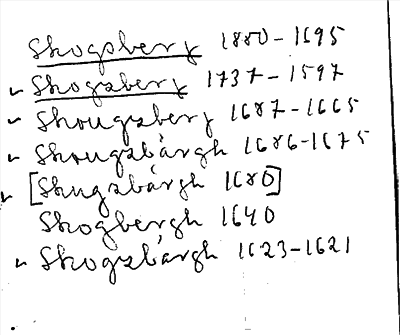 Skogsberg 1880-1695
✓ Skogzberg 1737-1597
✓ Skougzberg 1687-1665
✓ Skougzbårgh 1686-1675
✓ [Skugzbårgh 1680]
Skogbergh 1640
✓ Skogzbårgh 1623-1621